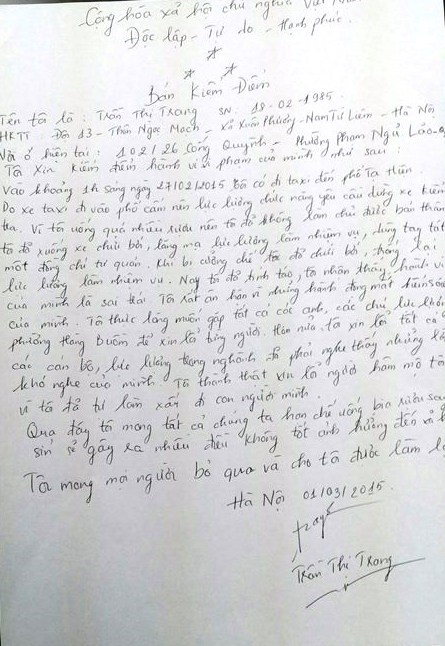 Cộng hòa xã hội chủ nghĩa Việt Nam
Độc lập - Tự do - Hạnh phúc.
Bản Kiểm Điểm
Tên tôi là : Trần Thị Trang SN : 18-02-1985.
HKTT : Đội 13 - Thôn Ngọc Mạch - Xã Xuân Phương - Nam Từ Liêm - Hà Nội
Nơi ở hiện tại : 102 / 26 Cống Quỳnh - Phường Phạm Ngũ Lão - Q
Tôi xin kiểm điểm hành vi vi phạm của mình như sau :
Vào khoảng 1h sáng ngày 27/02/2015 tôi có đi taxi đến phố Tạ Hiện.
Do xe taxi đi vào phố cấm nên lực lượng chức năng yêu cầu dừng xe kiểm
tra. Vì tôi uống quá nhiều rượu nên tôi đã không làm chủ được bản thân
tôi đã xuống xe chửi bới, lăng mạ lực lượng làm nhiệm vụ, dùng tay tát
một đồng chí tự quản. Khi bị cưỡng chế tôi đã chửi bới, chống lại
lực lượng làm nhiệm vụ. Nay tôi đã tỉnh táo, tôi nhận thấy hành vi
của mình là sai trái. Tôi rất ân hận vì những hành động mất kiểm soát
của mình. Tôi thực lòng muốn gặp tất cả các anh, các chú lực lượng
phường Hàng Buồm để xin lỗi từng người. Hơn nữa, tôi xin lỗi tất cả
các cán bộ, lực lượng trong nghành đã phải nghe thấy những lời
khó nghe của mình. Tôi thành thật xin lỗi người hâm mộ tôi
vì tôi đã tự làm xấu đi con người mình.
Qua đây tôi mong tất cả chúng ta hạn chế uống bia rượu say
sỉn sẽ gây ra nhiều điều không tốt ảnh hưởng đến xã hội
Tôi mong mọi người bỏ qua và cho tôi được làm lại
Hà Nội 01/03/2015.
Trang
Trần Thị Trang